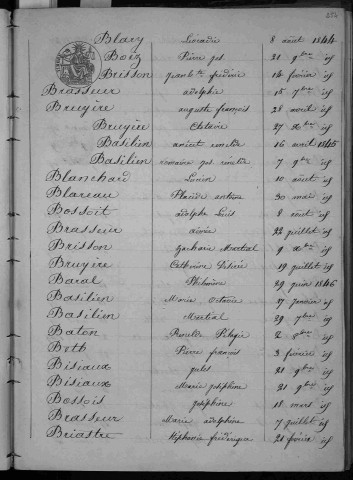 Blary Leocadie 8 août 1844
Boez Pierre jos 21 9bre id
Brisson jean bte frédéric 14 février id
Brasseur adolphe 15 7bre id
Bruyère auguste françois 28 août id
Bruyère Octavie 27 Xbre id
Basilien 16 août 1845
Basilien romaine jos 7 9bre id
Blanchard Lucien 10 août id
Blareau Placide antoine 30 mai id
Bossoit adolphe Louis 8 août id
Brasseur aimée 22 juillet id
Brisson Martial 9 Xbre id
Bruyère Catherine Désirée 19 juillet id
Baral Philomène 29 juin 1846
Basilien Marie Octavie 17 janvier id
Basilien Martial 29 7bre id
Baton Pélagie 2 8bre id
Both Pierre françois 3 février id
Bisiaux jules 21 9bre id
Bisiaux Marie joséphine 21 9bre id
Bossois joséphine 18 mars id
Brasseur Marie adolphine 7 juillet id
Briastre Stéphanie frédérique 21 février id